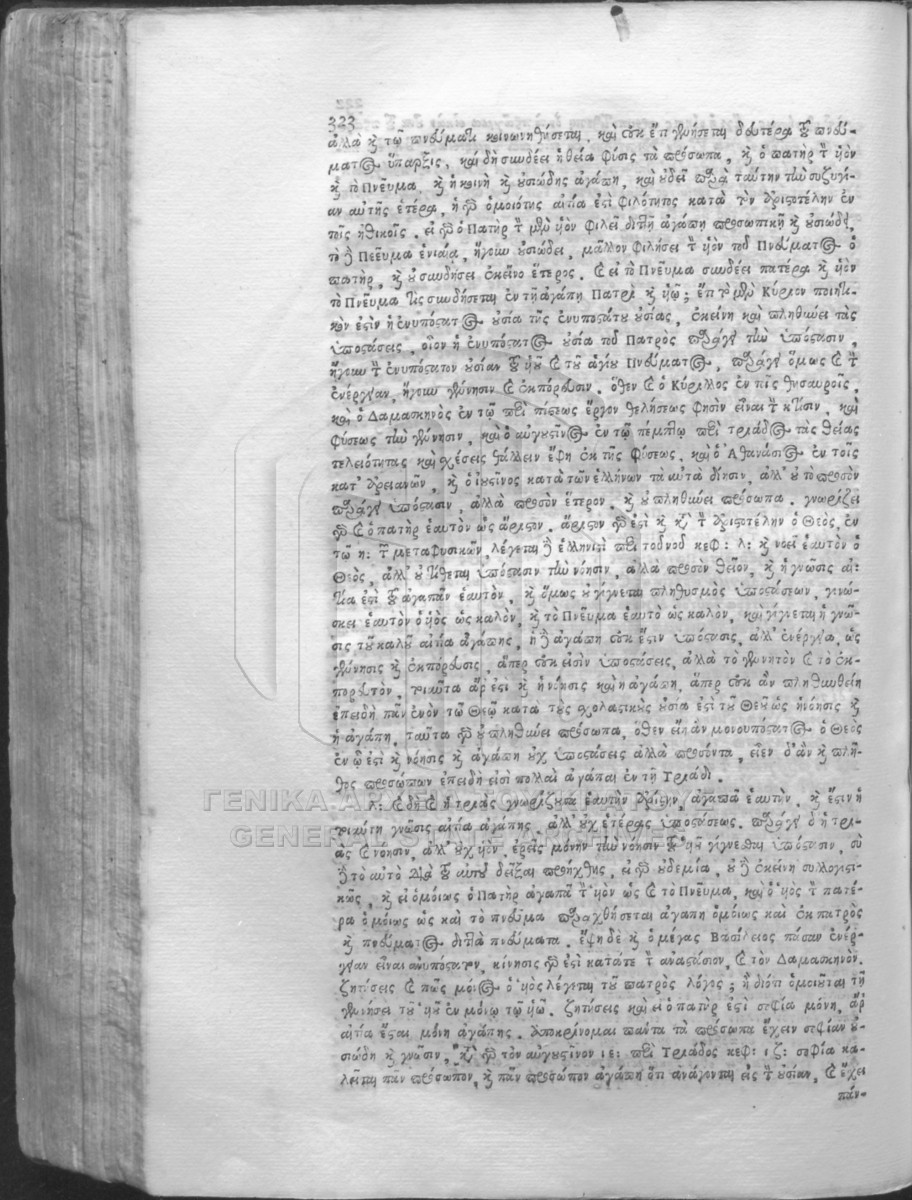 323
ἀλλὰ καὶ τῷ πνεύματι κοινωνηθήσεται, καὶ οὐκ ἔτι γεννήσεται δευτέρα τοῦ πνεύ-
ματος ὕπαρξις, καὶ δὴ συνδέει ἡ θεία φύσις τὰ πρόσωπα, καὶ ὁ πατὴρ τὸν υἱὸν
καὶ τὸ Πνεῦμα καὶ ἡ κοινὴ καὶ οὐσιώδης ἀγάπη, καὶ οὐδεῖ παρὰ ταύτην τὴν συζυγί-
αν αὐτῆς ἑτέρα, ἡ γὰρ ὁμοιότης αἰτία ἐστὶ φιλότητος κατὰ τὸν Ἀριστοτέλην ἐν
τοῖς ἠθικοῖς. εἰ γὰρ ὁ Πατὴρ τὸν μὲν υἱὸν φιλεῖ διττῇ ἀγάπῃ προσωπικῇ καὶ οὐσιώδει,
τὸ δὲ Πεεῦμα ἑνιαία, ἤγουν οὐσιώδει, μᾶλλον φιλήσει τὸν υἱὸν τοῦ Πνεύματος ὁ
πατὴρ, καὶ οὐ συνδήσει ἐκεῖνο ἕτερος. καὶ εἰ τὸ Πνεῦμα συνδέει πατέρα καὶ υἱὸν
τὸ Πνεῦμα τίς συνδήσεται ἐν τῇ ἀγάπῃ Πατρὶ καὶ υἱῷ; ἔτι τὸν μὲν Κύριον ποιητι-
κὸν ἐστὶν ἡ ἐνυπόστατος οὐσία τῆς ἐνυποστάτου οὐσίας, ἐκείνη καὶ πληθύνει τὰς
ὑποστάσεις, οἷον ἡ ἐνυπόστατος οὐσία τοῦ Πατρὸς παράγει τὴν ὑπόστασιν,
ἤγουν τὴν ἐνυπόστατον οὐσίαν τοῦ υἱοῦ καὶ τοῦ ἁγίου Πνεύματος, παράγει ὅμως καὶ τὴν
ἐνέργειαν, ἤγουν γέννησιν καὶ ἐκπόρευσιν. ὅθεν καὶ ὁ Κύριλλος ἐν τοῖς θησαυροῖς,
καὶ ὁ Δαμασκηνὸς ἐν τῷ περὶ πίστεως ἔργον θελήσεως φησὶν εἶναι τὴν κτίσιν, καὶ
φύσεως τὴν γέννησιν, καὶ ὁ αὐγουστῖνος ἐν τῷ πέμπτῳ περὶ τριάδος τὰς θείας
τελειότητας καὶ σχέσεις θάλλειν ἔφη ἐκ τῆς φύσεως. καὶ ὁ Ἀθανάσιος ἐν τοῖς
κατ' ἀρειανῶν, καὶ ὁ ἰουστῖνος κατὰ τῶν ἑλλήνων τὰ αὐτὰ
παράγει ὑπόστασιν, ἀλλὰ προσὸν ἕτερον, καὶ οὐ πληθύνει πρόσωπα. γνωρίζει
γὰρ καὶ ὁ πατὴρ ἑαυτὸν ὡς ἄριστον. ἄριστον γὰρ ἐστὶ καὶ κατὰ τὸν Ἀριστοτέλην ὁ Θεὸς, ἐν
τῷ η: τῶν μεταφυσικῶν, λέγεται δὲ ἑλληνιστὶ περὶ τοῦ νοῦ κεφ: λ: καὶ νοεῖ ἑαυτὸν ὁ
Θεὸς, ἀλλ' οὐ τίθεται ὑπόστασιν τὴν νόησιν, ἀλλὰ προσὸν θεῖον, καὶ ἡ γνῶσις αἰ-
τία ἐστὶ τοῦ ἀγαπᾶν ἑαυτὸν, καὶ ὅμως οὐ γίγνεται πληθυσμὸς ὑποστάσεων, γινώ-
σκει ἑαυτὸν ὁ υἱὸς ὡς καλὸν, καὶ τὸ Πνεῦμα ἑαυτὸ ὡς καλὸν, καὶ γίγνεται ἡ γνῶ-
σις τοῦ καλοῦ αἰτία ἀγάπης, ἡ δὲ ἀγάπη οὐκ ἔστιν ὑπόστασις, ἀλλ' ἐνέργεια, ὡς
γέννησις καὶ ἐκπόρευσις, ἅπερ οὐκ εἰσὶν ὑποστάσεις, ἀλλὰ τὸ γεννητὸν καὶ τὸ ἐκ-
πορευτὸν, τοιαῦτα ἄρ' ἐστὶ καὶ ἡ νόησις καὶ ἡ ἀγάπη, ἅπερ οὐκ ἂν πληθυνθείη
ἐπειδὴ πᾶν ἐνὸν τῷ Θεῷ κατὰ τοὺς σχολαστικοὺς οὐσία ἐστὶ τοῦ Θεοῦ ὡς ἡ νόησις καὶ
ἡ ἀγάπη, ταῦτα γὰρ οὐ πληθύνει πρόσωπα, ὅθεν εἴη ἂν μονουπόστατος ὁ Θεὸς
ἐν ᾧ ἐστὶ καὶ νόησις καὶ ἀγάπη οὐχ ὑποστάσεις ἀλλὰ προσόντα, εἶεν δ' ἂν καὶ πλῆ-
θος προσώπων ἐπειδὴ εἰσὶ πολλαὶ ἀγάπαι ἐν τῇ Τριάδι.
λ: καὶ δὴ καὶ ἡ τριὰς γνωρίζουσα ἑαυτὴν ἀρίστην ἀγαπᾷ ἑαυτὴν, καὶ ἔστιν ἡ
τοιαύτη γνῶσις αἰτία ἀγάπης, ἀλλ' οὐχ ἑτέρας ὑποστάσεως. παράγει δ' ἡ τρι-
ὰς καὶ νόησιν, ἀλλ' οὐχ υἱὸν. ἐρεῖς μόνην τὴν νόησιν τοῦ υἱοῦ γίγνεσθαι ὑπόστασιν, σὺ
δὲ τὸ αὐτὸ διὰ τοῦ αὐτοῦ δεῖξαι προήχθης, εἰ γὰρ οὐδεμία, οὐδ' ἐκείνη συλλογιστι-
κῶς, καὶ εἰ ὁμοίως ὁ Πατὴρ ἀγαπᾷ τὸν υἱὸν ὡς καὶ τὸ Πνεῦμα, καὶ ὁ υἱὸς τὸν πατέ-
ρα ὁμοίως ὡς καὶ τὸ πνεῦμα παραχθήσεται ἀγάπη ὁμοίως καὶ ἐκ πατρὸς
καὶ πνεύματος διττὰ πνεύματα. ἔφη δὲ καὶ ὁ μέγας Βασίλειος πᾶσαν ἐνέρ-
γειαν εἶναι ἀνυπόστατον, κίνησις γὰρ ἐστὶ κατά τε τὸν ἀναστάσιον, καὶ τὸν Δαμασκηνὸν.
ζητήσεις καὶ πῶς μόνος ὁ υἱὸς λέγεται τοῦ πατρὸς λόγος; ἢ διότι ὁμοιοῦται τῇ
γεννήσει τοῦ υἱοῦ ἐν μόνῳ τῷ υἱῷ. ζητήσεις καὶ εἰ ὁ πατὴρ ἐστὶ σοφία μόνη, ἄρ'
αἰτία ἔσται μόνη ἀγάπης. Ἀποκρίνομαι πάντα τὰ πρόσωπα ἔχειν σοφίαν οὐ-
σιώδη καὶ γνῶσιν, κατὰ γὰρ τὸν αὐγουστῖνον ιε: περὶ Τριάδος κεφ: ιζ: σοφία κα-
λεῖται πᾶν πρόσωπον, καὶ πᾶν πρόσωπον ἀγάπη ὅτι ἀνάγονται εἰς τὴν οὐσίαν, καὶ ἔχει
πάν-
ΓΕΝΙΚΑ ΑΡΧΕΙΑ ΤΟΥ ΚΡΑΤΟΥΣ
GENERAL STATE ARCHIVES